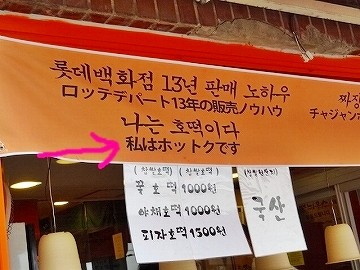 롯데백화점 13년 판매 노하우
ロッテデパート13年の販売ノウハウ
나는 호떡이다
私はホットクです
짜장
チャジャン
(찹쌀호떡) (찹쌀호떡)
꿀호떡 1000원
야채호떡 1000원
피자호떡 1500원
국산